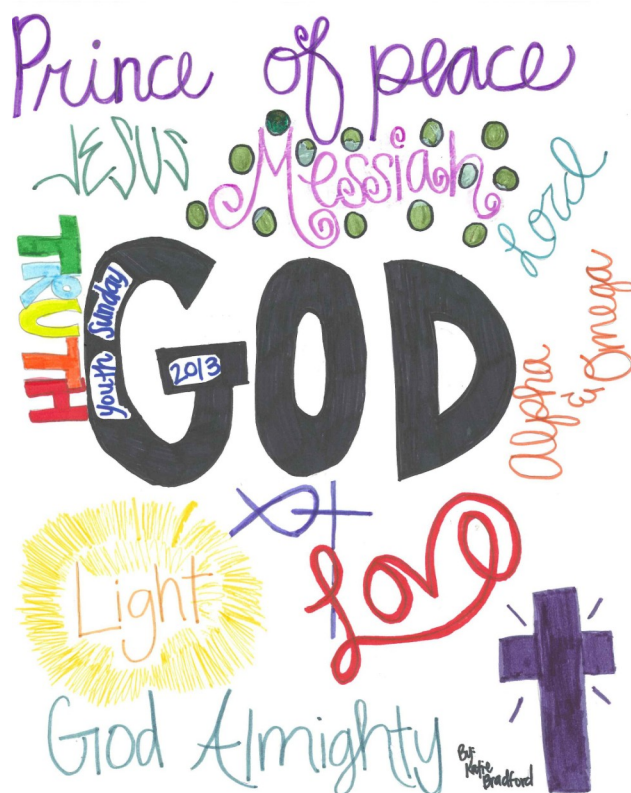 Prince of peace
JESUS
Messiah
Lord
TRUTH
GOD
Youth Sunday
2013
Alpha
&
Omega
Light
Love
God Almighty
By:
Katie
Bradford